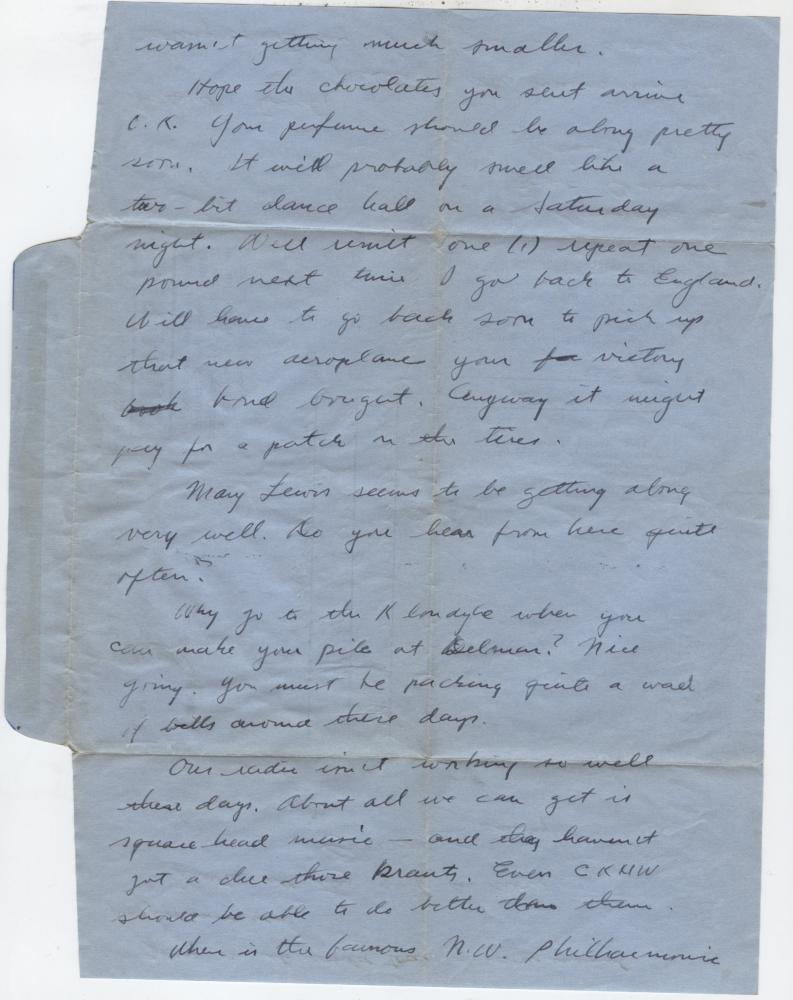 wasn't getting much smaller.
Hope the chocolates you sent arrive
O.K. Your perfume should be along pretty
soon. It will probably smell like a
two-bit dance hall on a Saturday
night. Will remit one (1) repeat one
pound next time I go back to England.
Will have to go back soon to pick up
that new aeroplane your victory
bond bought. Anyway it might
pay for a patch in the tires.
Mary Lewis seems to be getting along
very well. Do you hear from here quite
often?
Why go to the Klondyke when you
can make your pile at Delmar? Nice
going. You must be packing quite a wad
of bills around these days.
Our radio isn't working so well
these days. About all we can get is
square head music — and they haven't
got a clue those Krauts. Even CKNW
should be able to do better than them.
When is the famous N.W. Philharmonic